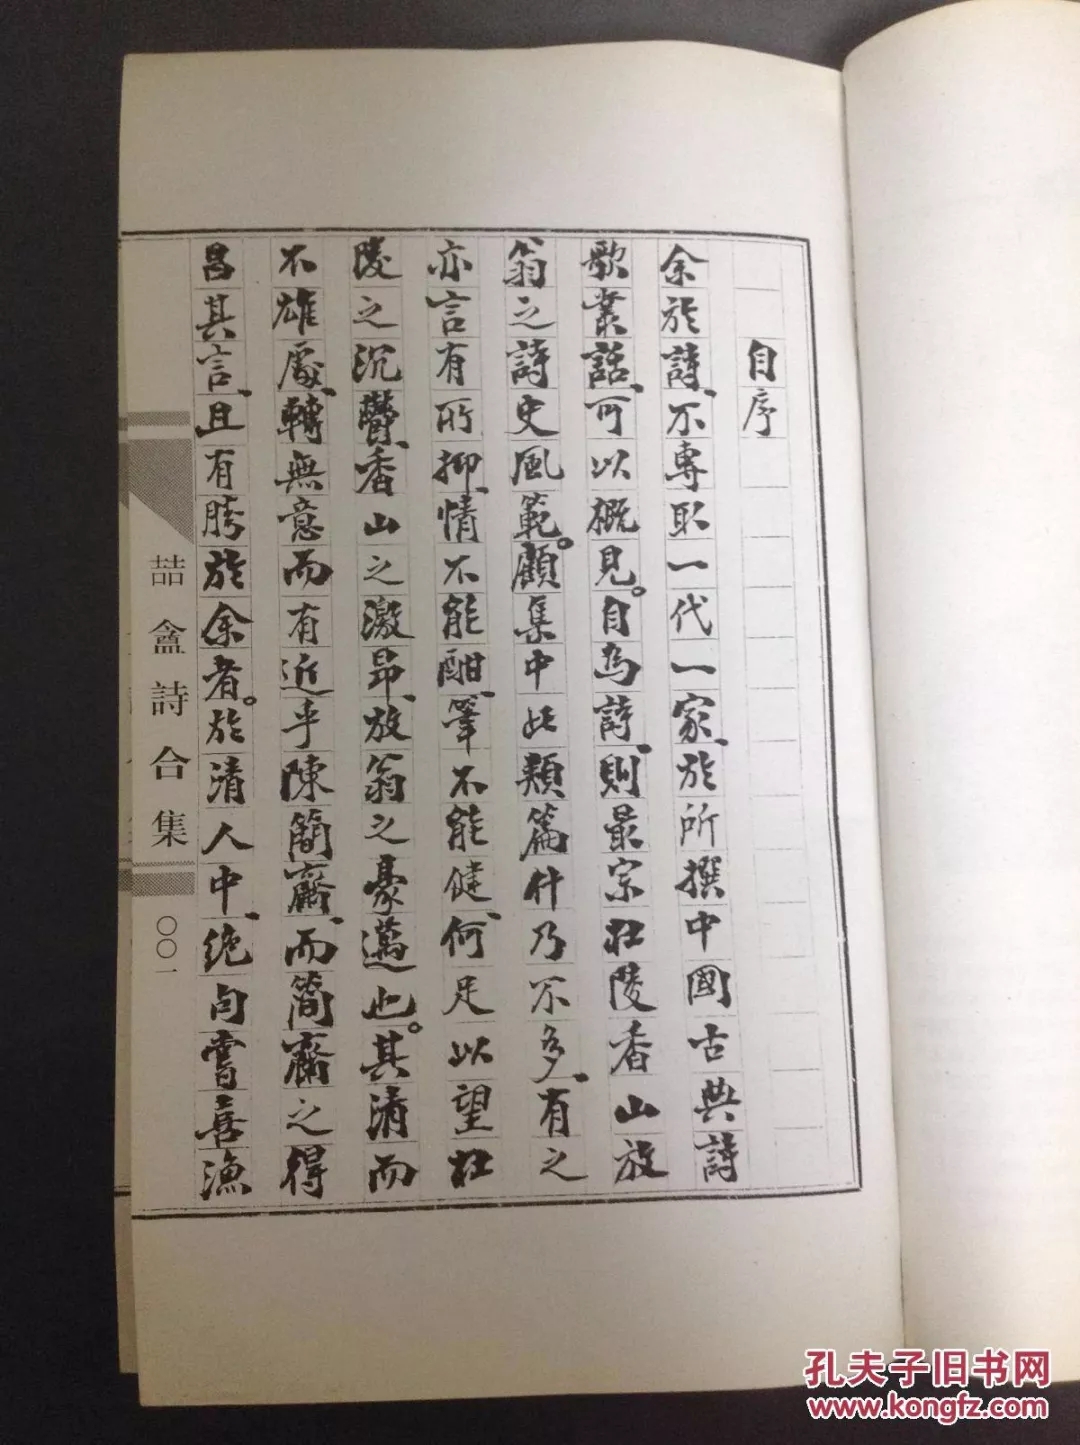 自序
余於詩、不專取一代一家、於所撰中國古典詩
歌叢話、可以概見。自為詩、則最宗杜陵香山放
翁之詩史風範。顧集中此類篇什乃不多、有之
亦言有所抑、情不能酣、筆不能健、何足以望杜
陵之沉鬱、香山之激昂、放翁之豪邁也。其清而
不雄處、轉無意而有近乎陳簡齋、而簡齋之得
昌其言、且有勝於余者。於清人中、絕句嘗喜漁
喆盦詩合集
〇〇一
孔夫子旧书网
www.kongfz.com